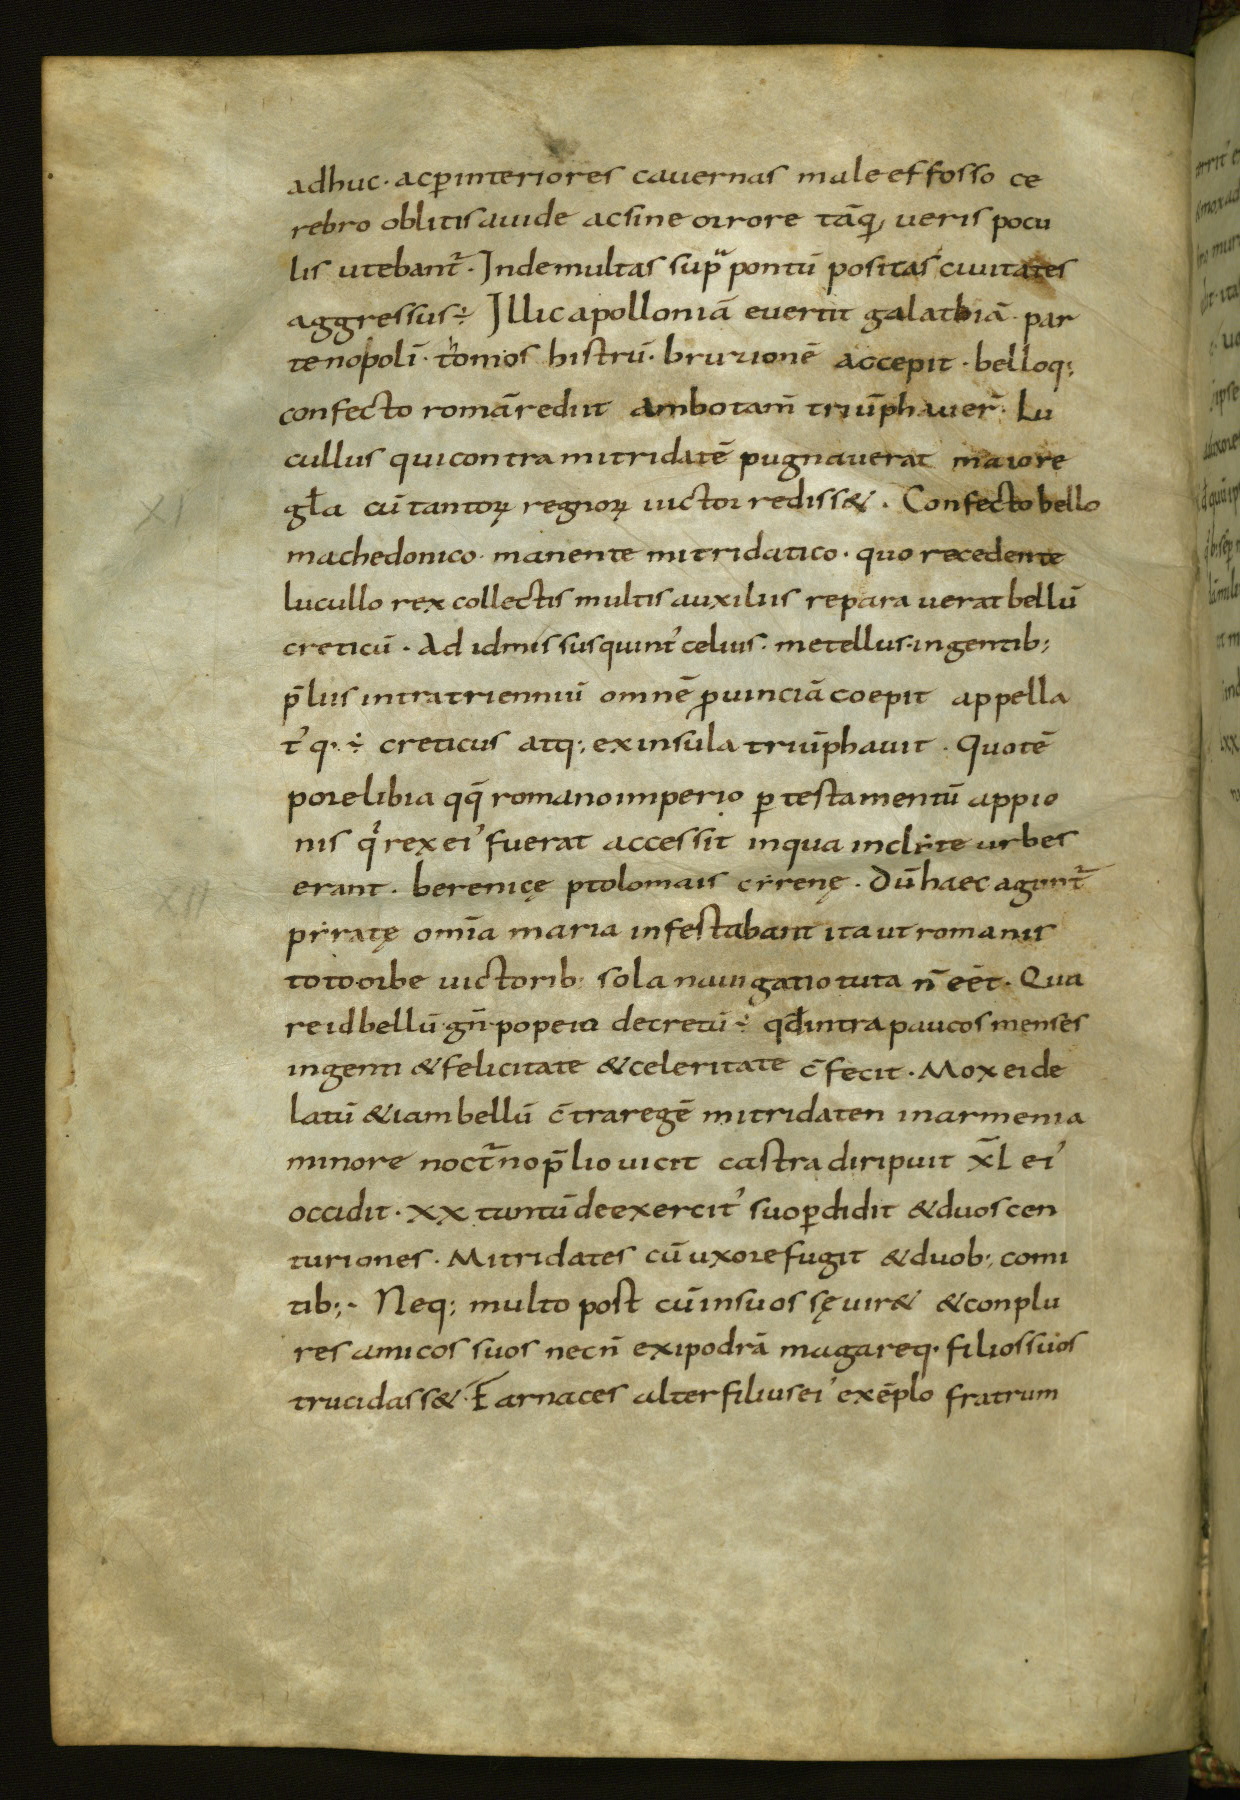 adhuc · ac ꝑ interiores cauernas male effosso ce
rebro oblitis auide ac sine orrore tāq̄ ueris pocu
lis utebant᷑ · Inde multas supͣ pontū positas ciuitates
aggressus ÷ Illic apolloniā euertit galathiā · par
tenopolī · thomos histrū · brurionē accepit · belloq;
confecto romā rediit ambo tam̄ triūphauer̄ · Lu
cullus qui contra mitridatē pugnauerat maiore
gƚa cū tantoꝝ regnoꝝ uictor rediss& · Confecto bello
XI
machedonico · manente mitridatico · quo recedente
lucullo rex collectis multis auxiliis reparauerat bellū
creticū · Ad id missus quint᾽ celius · metellus · ingentib;
p̄liis intra trienniū omnē ꝓuinciā coepit appella
t᾽ q· ÷ creticus atq; ex insula triūphauit · Quo tē
pore libia qq̄ romano imperio ꝑ testamentū appio
nis qͥ rex ei᾽ fuerat accessit in qua inclẏte urbes
erant · berenicę ptolomais cẏrenę · Dū haec agunt᷑
XII
pẏratę om̄ia maria infestabant ita ut romanis
toto orbe uictorib; sola nauigatio tuta n̄ eēt · Qua
re id bellū · gn̄ · popeio decretū ÷ qđ intra paucos menses
ingenti & felicitate & celeritate c̄fecit · Mox ei de
latū & iam bellū c̄tra regē mitridaten in armenia
minore noct᷑no p̄lio uicit castra diripuit X̄L ei᾽
occidit · XX tantū de exercit᾽ suo ꝑdidit & duos cen
turiones · Mitridates cū uxore fugit & duob; comi
tib; · Neq; multo post cū in suos sęuir& & conplu
res amicos suos necn̄ exipodrā magareq· filios suos
trucidass& · Farnaces alter filius ei᾽ exēplo fratrum